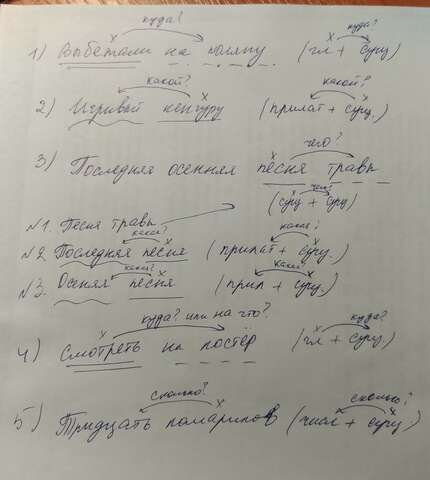 куда? куда?
1) Выбежали на поляну (гл + сущ)
какой? какой?
2) Игривый кенгуру (прилаг + сущ.)
чего?
3) Последняя осенняя песня травы
чего?
(сущ + сущ)
№1. Песня травы
какая? какая?
№2. Последняя песня (прилаг + сущ.)
какая? какая?
№3. Осеняя песня (прил + сущ.)
куда? или на что? куда?
4) Смотреть на постер (гл + сущ.)
сколько? сколько?
5) Тридцать комариков (числ + сущ)